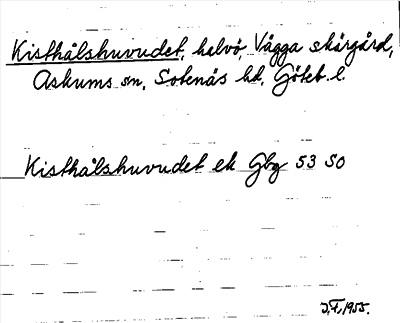 Kisthålshuvudet, halvö, Vägga skärgård,
Askums sn, Sotenäs hd, Göteb. l.
Kisthålshuvudet ek Gbg 53 SO
J.F. 1955.